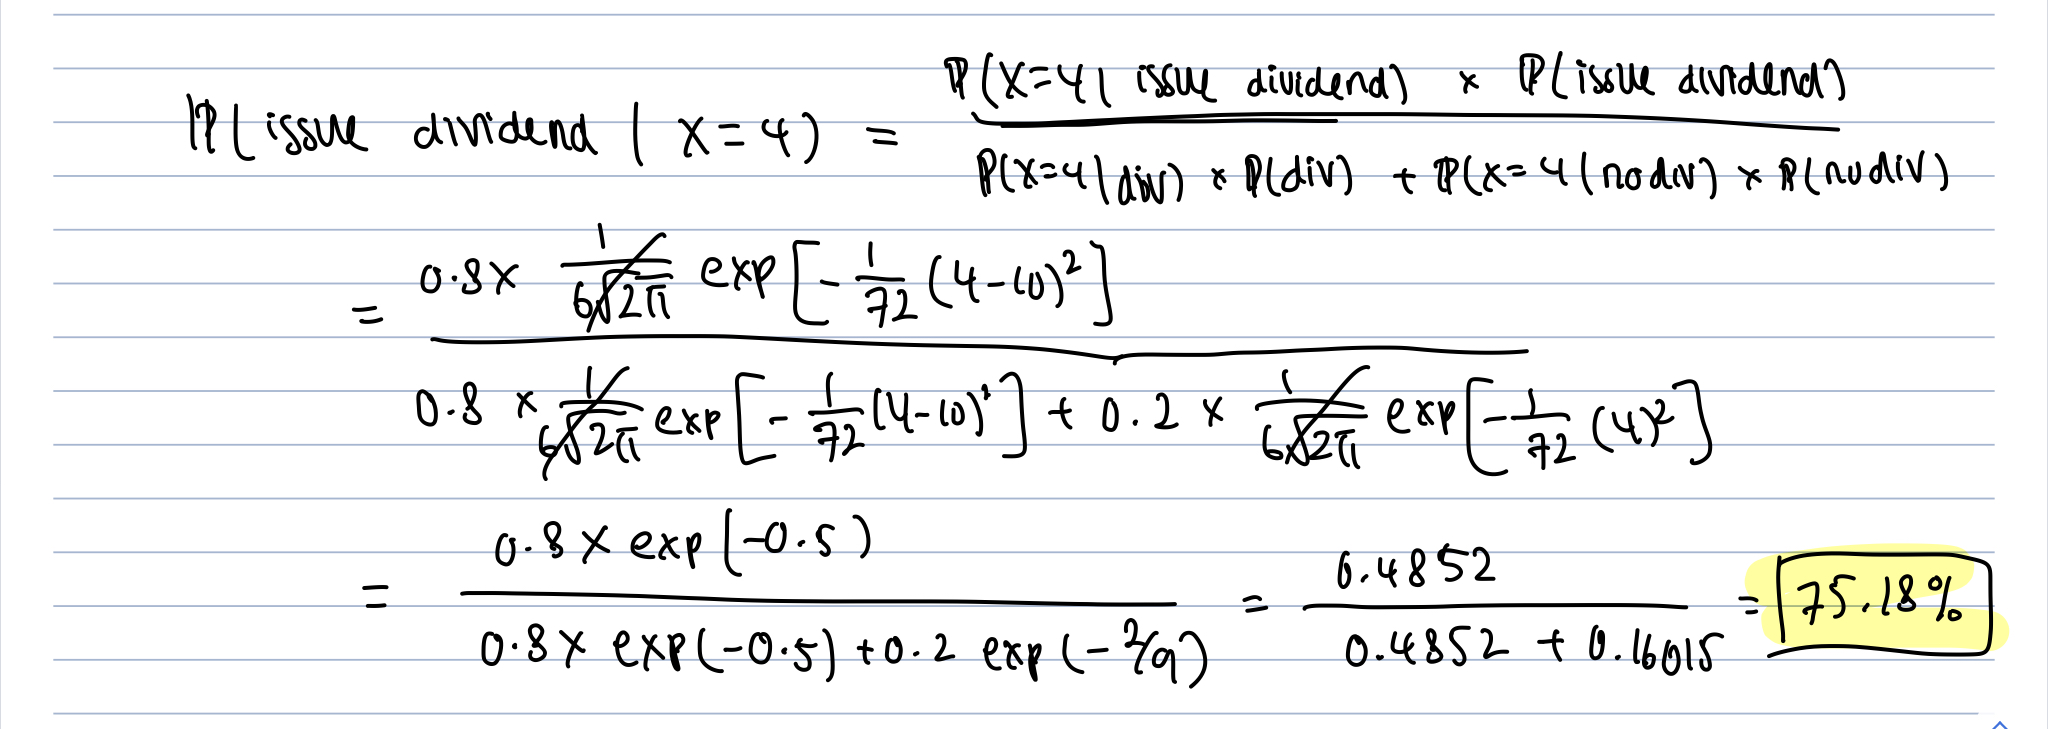 ℙ(issue dividend | X=4) = ℙ(X=4 | issue dividend) × ℙ(issue dividend) / ℙ(X=4 | div) × ℙ(div) + ℙ(X=4 | no div) × ℙ(no div)
= 0.8 × 1/(6√2π) exp[-1/72 (4-10)²] / 0.8 × 1/(6√2π) exp[-1/72 (4-10)²] + 0.2 × 1/(6√2π) exp[-1/72 (4)²]
= 0.8 × exp(-0.5) / 0.8 × exp(-0.5) + 0.2 exp(-2/9) = 0.4852 / 0.4852 + 0.16015 = 75.18%